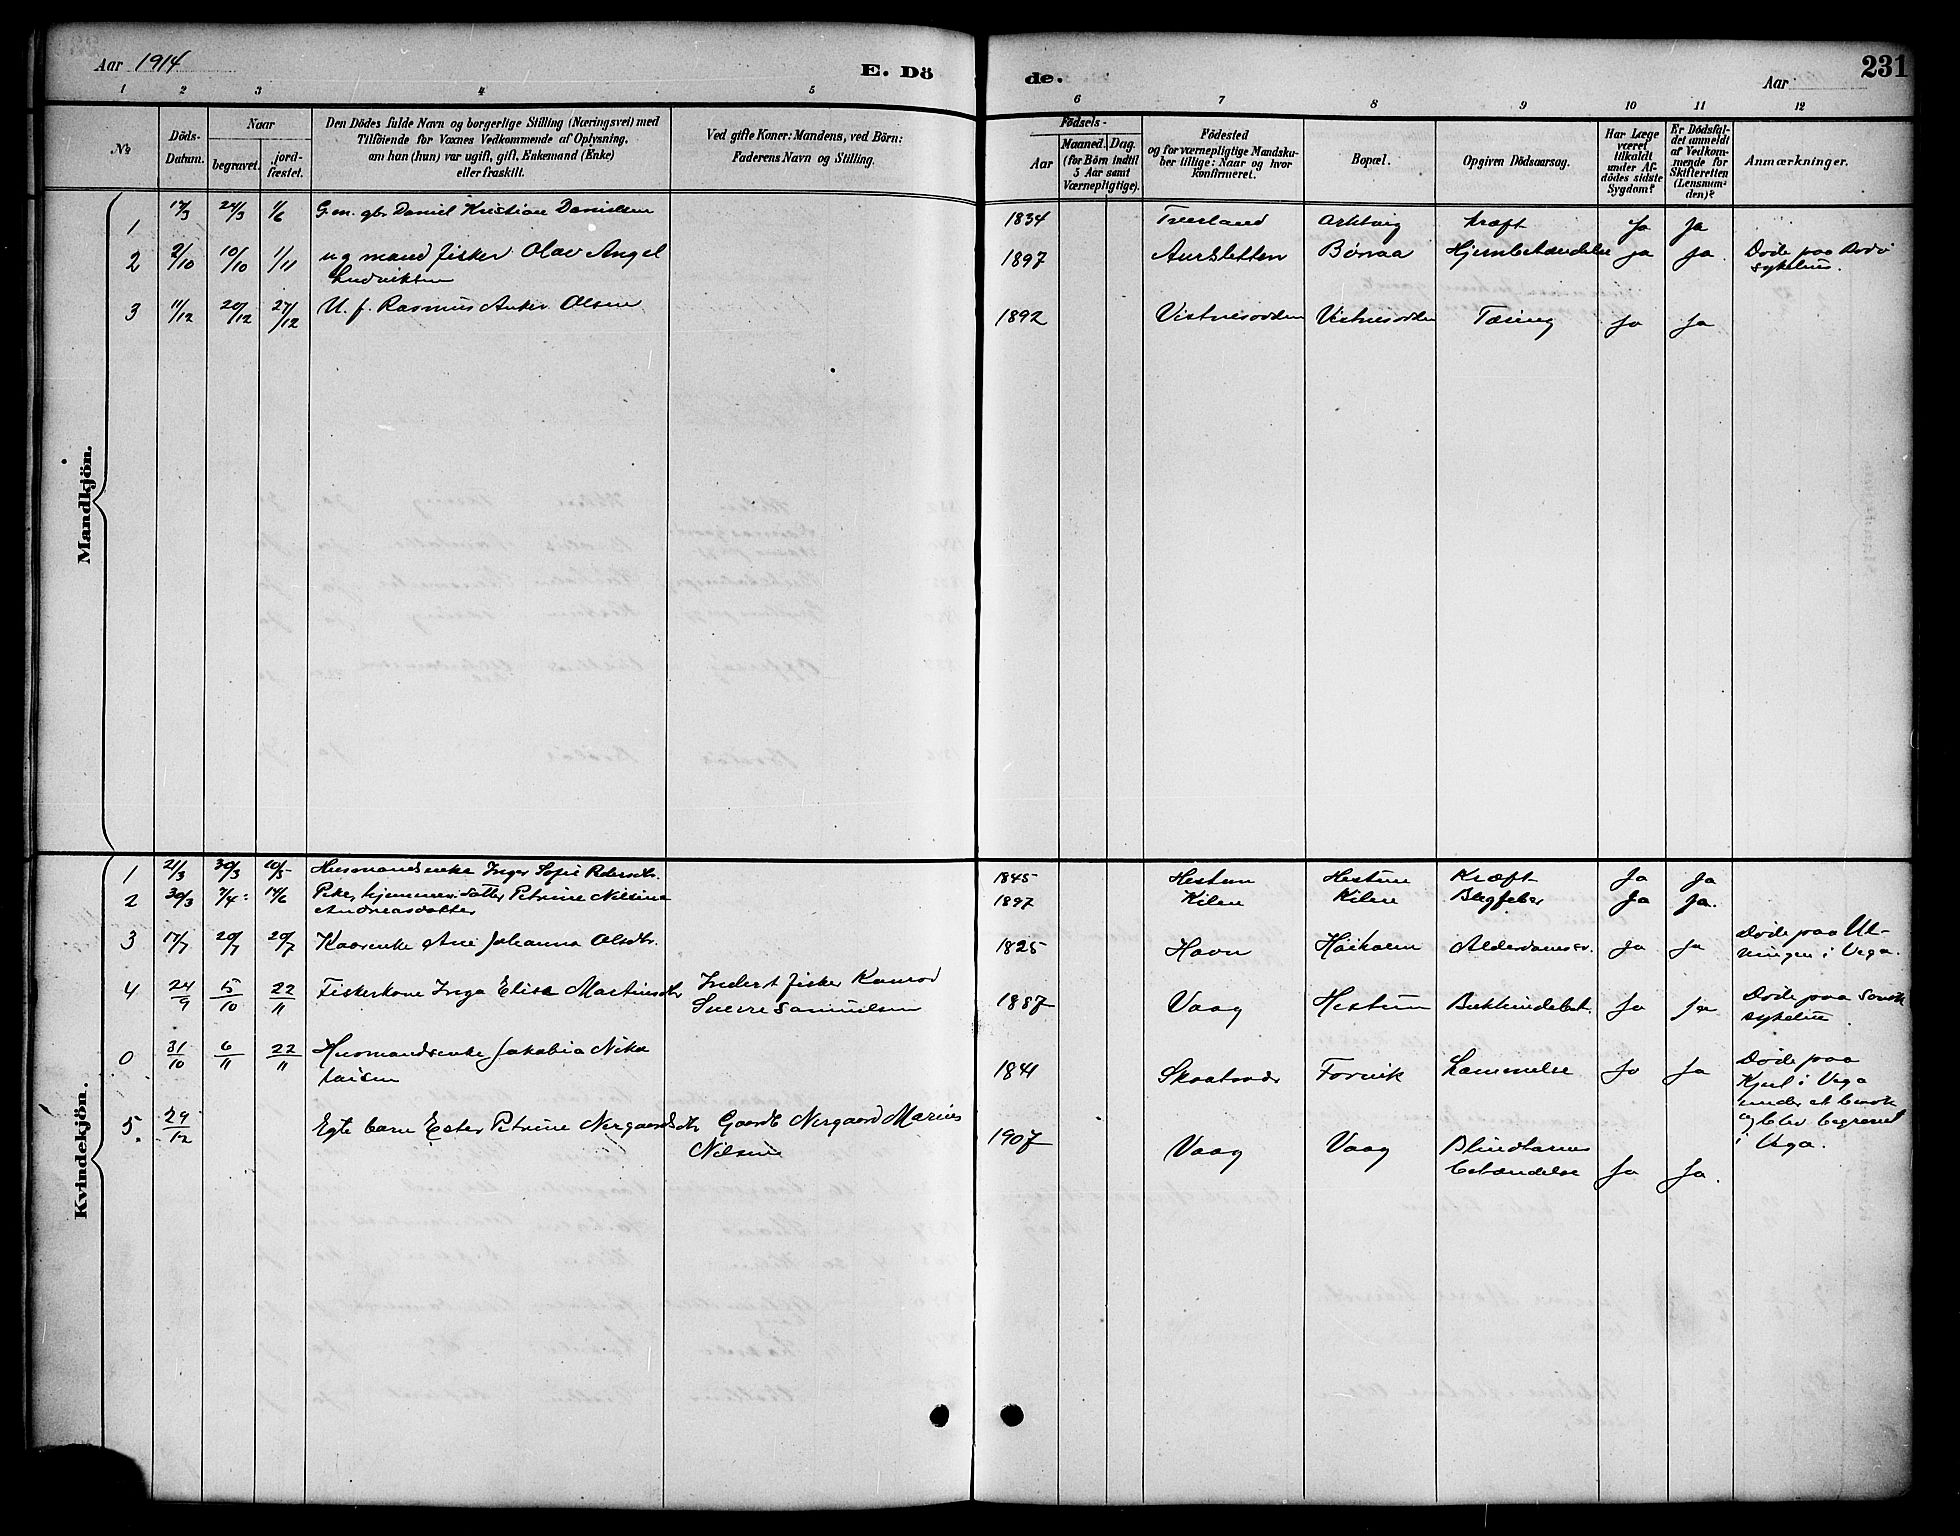 Aar 1914
E. Dö
de.
231
Aar
1 2 3 4 5 6 7 8 9 10 11 12
№
Döds-
Datum.
Naar
begravet.
jord-
fæstet.
Den Dödes fulde Navn og borgerlige Stilling (Næringsvei) med
Tilföiende for Voxnes Vedkommende af Oplysning.
om han (hun) var ugift, gift, Enkemand (Enke)
eller fraskilt.
Ved gifte Koner: Mandens, ved Börn:
Faderens Navn og Stilling.
Födsels-
Aar
Maaned.
Dag.
(for Börn indtil
5 Aar samt
Værnepligtige).
Födested
og for værnepligtige Mandska-
ber tillige: Naar og hvor
Konfirmeret.
Bopæl.
Opgiven Dödsaarsag.
Har Læge
været
tilkaldt
under Af-
dödes sidste
Sygdom?
Er Dödsfal-
det anmeldt
af Vedkom-
mende for
Skifteretten
(Lensman-
den)?
Anmærkninger.
Mandkjön.
1 17/3 24/3 1/6 G.m. gbr Daniel Kristian Danielsen 1834 Tverland Kræft Ja Ja
2 2/10 10/10 1/11 ug mand fisker Olav Angel
Ludviksen
1897 Aursletten Bønaa Hjernbetændelse ja ja. Døde paa Bodø
sykehus.
3 11/12 20/12 27/12 U. f. Rasmus Anker Olsen 1892 Vistnesodden Vistnesodden Tæring Ja Ja
Kvindekjön.
1 21/3 30/3 10/5 Husmandsenke Inger Sofie Pedersdtr. 1845 Hestun Hestun Kræft Ja Ja
2 30/3 7/4 14/6 Pike, hjemmev. datter Petrine Nilsine
Andreasdatter
1897 Kilen Kilen Ja Ja.
3 17/7 20/7 20/7 Kaarenke Ane Johanna Olsdtr. 1825 Havn Høiholm Alderdomssv. Ja Ja Døde paa Ul-
vingen i Vega.
4 24/9 5/10 22/11 Fiskerkone Inga Elise Martinsdtr Inderst fisker Konrad
Sverre Samuelsen
1887 Vaag Hestun Ja Ja Døde paa
sykehus.
0 31/10 6/11 22/11 Husmandsenke Jakobia Niko
laisen
1841 Skaalvær Forvik Lammelse Ja Ja Døde paa
i Vega
under et besøk
og blev begravet
i Vega.
5. 29/12 Egte barn Ester Petrine Nergaardsdtr Gaardb Nergaard Marius
Nilsen
1907 Vaag Vaag Blindtarms
betændelse Ja Ja.